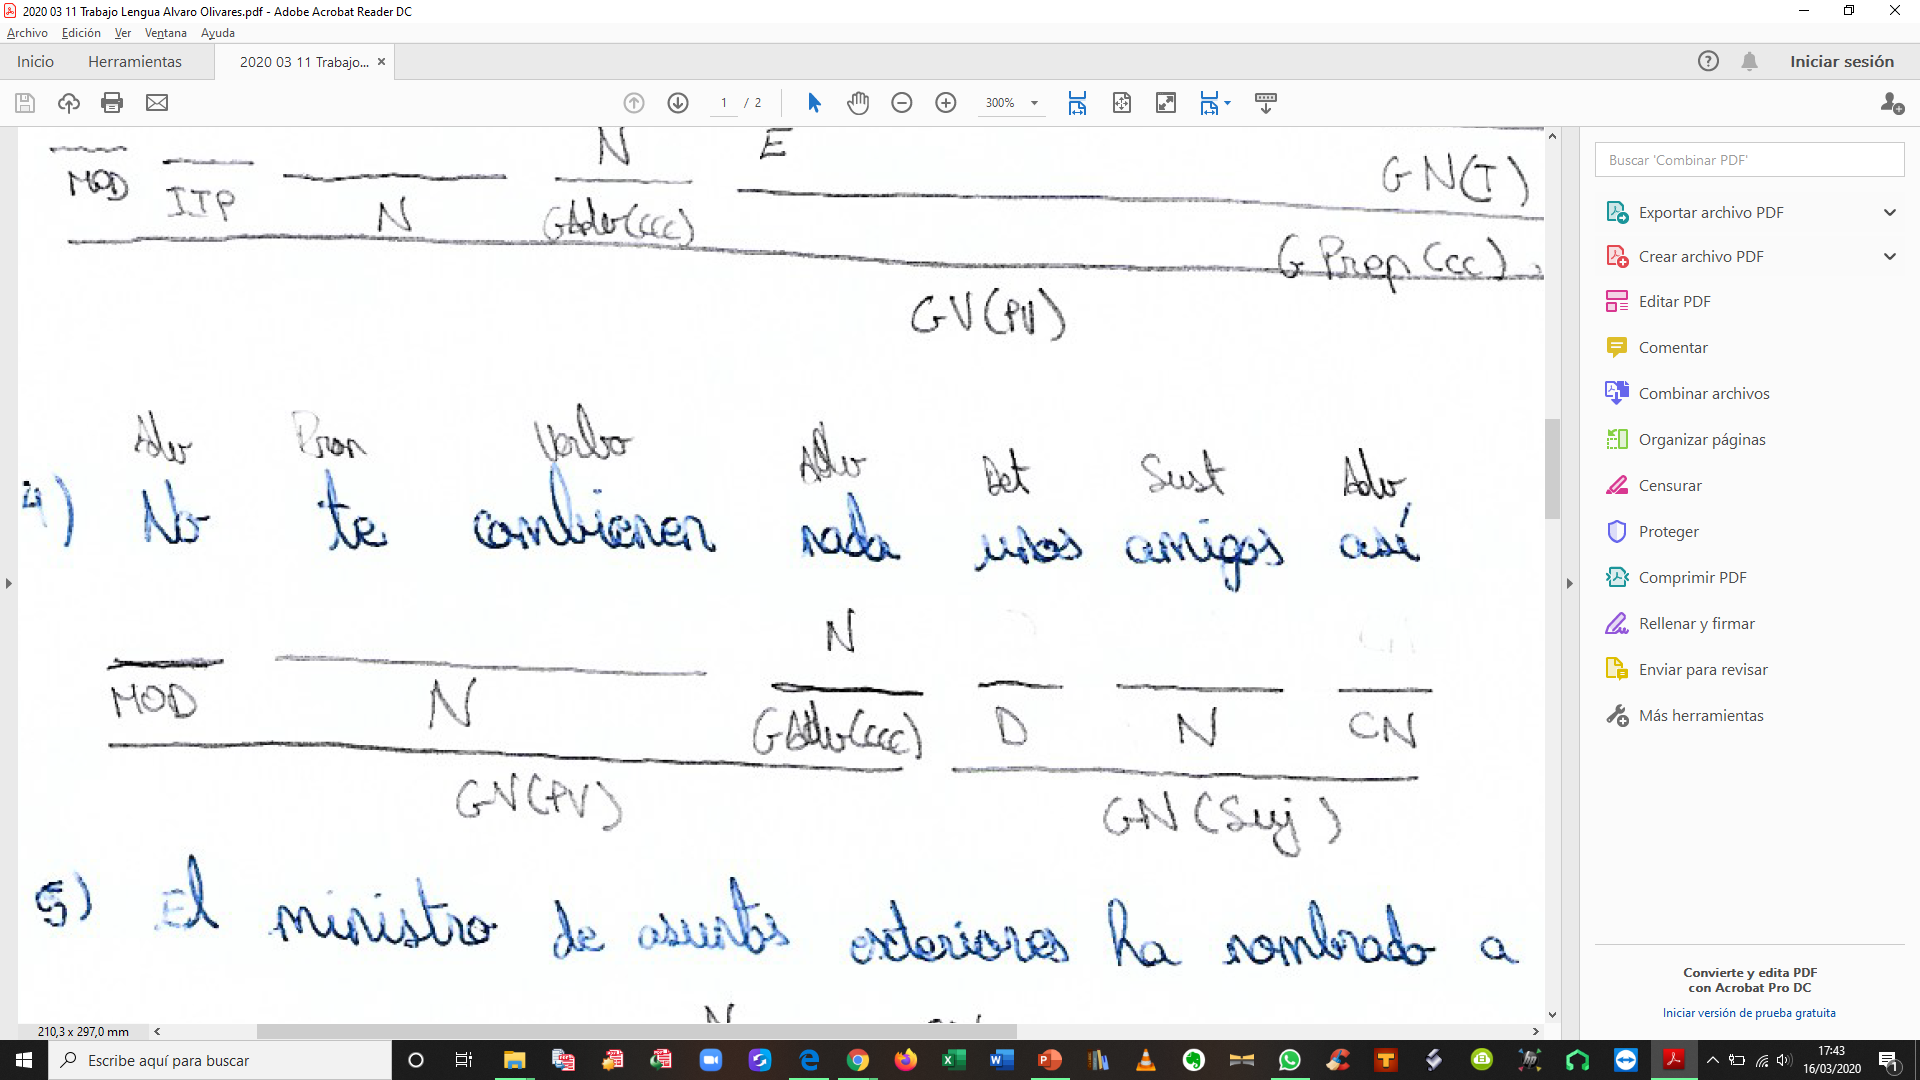 2020 03 11 Trabajo Lengua Alvaro Olivares.pdf - Adobe Acrobat Reader DC
Archivo Edición Ver Ventana Ayuda
Inicio Herramientas 2020 03 11 Trabajo... × Iniciar sesión
1 / 2 300%
N E
MOD ITP N GAdv(CCC) GN(T)
G Prep (CC)
GV(PV)
Adv Pron Verbo Adv Det Sust Adv
4) No te combienen nada unos amigos así
N
MOD N GAdv(CCC) D N CN
GV(PV) GN(Suj)
5) El ministro de asuntos exteriores ha nombrado a
N
210,3 x 297,0 mm
Buscar 'Combinar PDF'
Exportar archivo PDF
Crear archivo PDF
Editar PDF
Comentar
Combinar archivos
Organizar páginas
Censurar
Proteger
Comprimir PDF
Rellenar y firmar
Enviar para revisar
Más herramientas
Convierte y edita PDF
con Acrobat Pro DC
Iniciar versión de prueba gratuita
Escribe aquí para buscar
17:43
16/03/2020
1